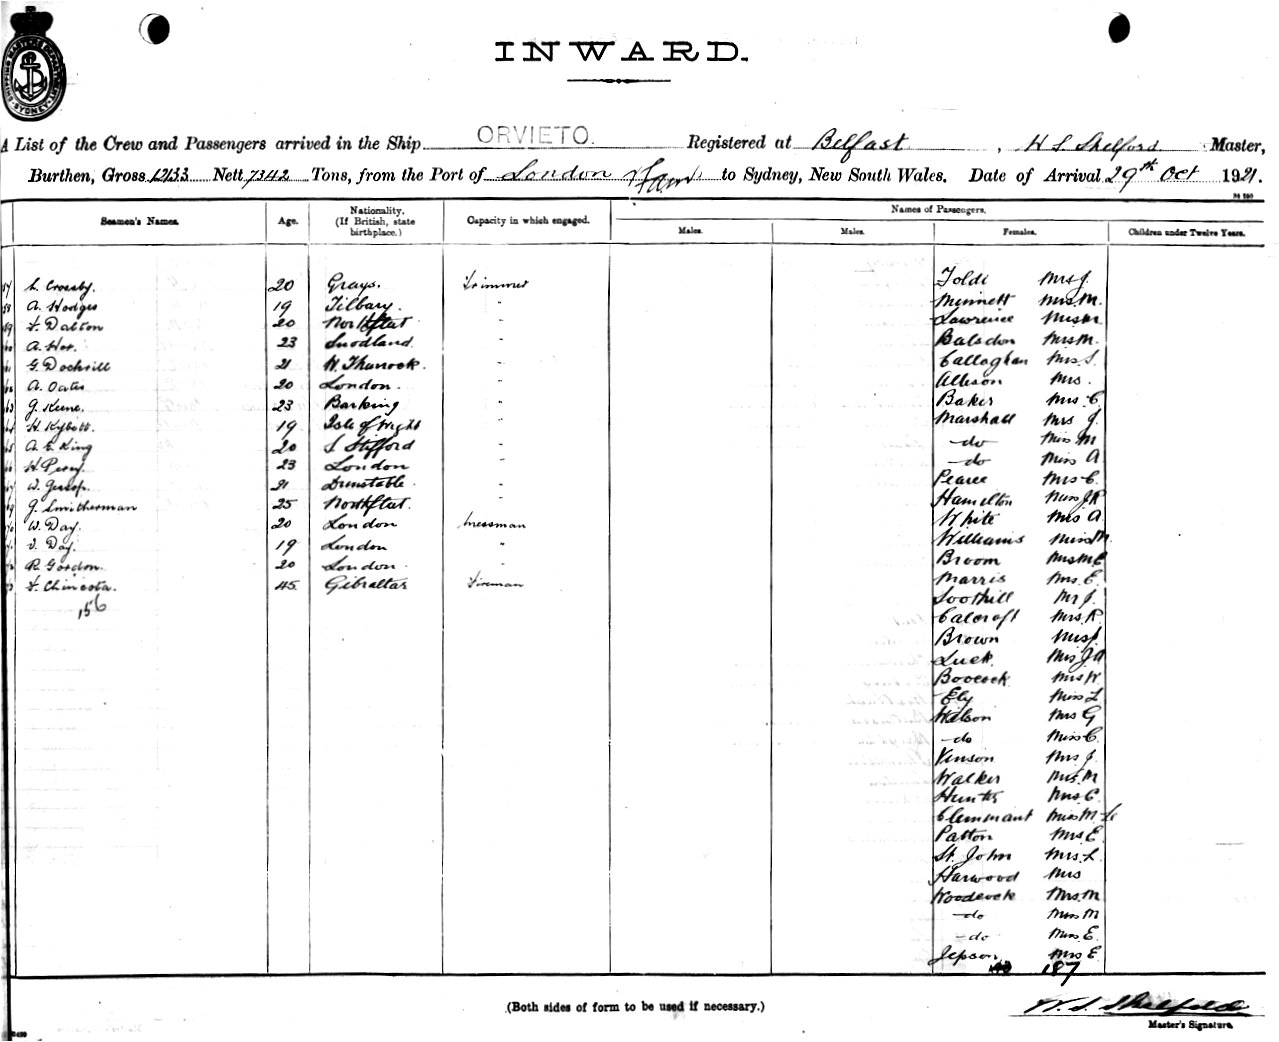 SYDNEY
INWARD.
A List of the Crew and Passengers arrived in the Ship ORVIETO. Registered at Belfast, Master,
Burthen, Gross 12133 Nett 7342 Tons, from the Port of London to Sydney, New South Wales. Date of Arrival 29th Oct 1921.
Seamen's Names. Age. Nationality. (If British, state birthplace.) Capacity in which engaged. Names of Passengers.
Males. Males. Females. Children under Twelve Years.
L. Crosby 20 Grays. Trimmer Toldi Mrs J.
A. Hodges 19 Tilbury. " Minnett Mrs. M.
F. Dalton 20 Northfleet " Lawrence Miss M
A. 23 Snodland. " Balsdon Mrs M.
G. Dockrill 21 W. Thurrock. " Callaghan Mrs. S.
A. Oates 20 London. " Allison Mrs.
J. Keene. 23 Barking " Baker Mrs C
H. Kybett. 19 Isle of Wight " Marshall Mrs J.
A. E. King 20 S Stifford " do Miss M
H. Percy. 23 London " do Miss A
W. Jessop. 21 Dunstable " Pearce Mrs C.
J. Smitherman 25 Northfleet. " Hamilton J R
W. Day. 20 London Messman White Mrs A
V. Day. 19 London " Williams Miss M.
R. Gordon. 20 London. " Broom Mrs M E
F. Chincota. 45. Gibraltar Fireman Morris Mrs. E.
156 Soothill J.
Calcroft Mrs. R.
Brown
Luck. Mrs J A
Boocock Mrs W
Ely Miss L
Watson Mrs G
do Miss C.
Vinson Mrs. J
Walker Mrs. M
Hunter Mrs. C.
Clemmant Miss M. Le
Patton Mrs. E
St. John Mrs. L
Harwood Mrs
Woodcock Mrs. M
do Miss M
do Miss E.
Jepson Mrs E
187
(Both sides of form to be used if necessary.)
Master's Signature.